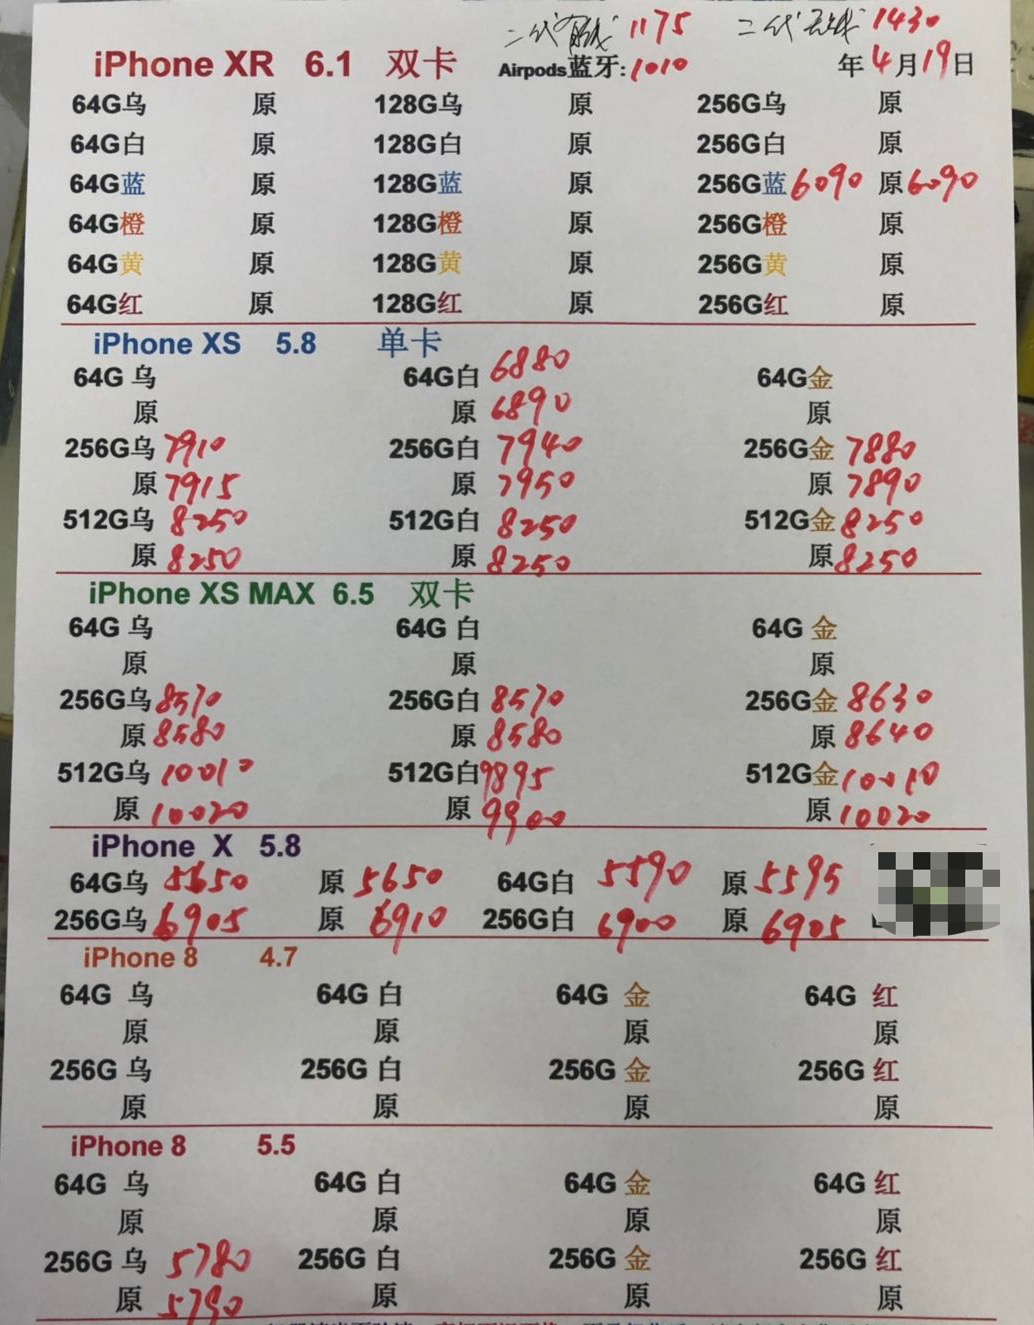 二代有线 1175 二代无线 1430
iPhone XR 6.1 双卡 Airpods蓝牙:1010 年4月19日
64G乌 原 128G乌 原 256G乌 原
64G白 原 128G白 原 256G白 原
64G蓝 原 128G蓝 原 256G蓝 6090 原 6090
64G橙 原 128G橙 原 256G橙 原
64G黄 原 128G黄 原 256G黄 原
64G红 原 128G红 原 256G红 原
iPhone XS 5.8 单卡
64G 乌 64G白 6880 64G金
原 原 6890 原
256G乌 7910 256G白 7940 256G金 7880
原 7915 原 7950 原 7890
512G乌 8250 512G白 8250 512G金 8250
原 8250 原 8250 原 8250
iPhone XS MAX 6.5 双卡
64G 乌 64G 白 64G 金
原 原 原
256G乌 8570 256G白 8570 256G金 8630
原 8580 原 8580 原 8640
512G乌 10010 512G白 9895 512G金 10010
原 10020 原 9900 原 10020
iPhone X 5.8
64G乌 5650 原 5650 64G白 5590 原 5595
256G乌 6905 原 6910 256G白 6900 原 6905
iPhone 8 4.7
64G 乌 64G 白 64G 金 64G 红
原 原 原 原
256G 乌 256G 白 256G 金 256G 红
原 原 原 原
iPhone 8 5.5
64G 乌 64G 白 64G 金 64G 红
原 原 原 原
256G 乌 5780 256G 白 256G 金 256G 红
原 5790 原 原 原